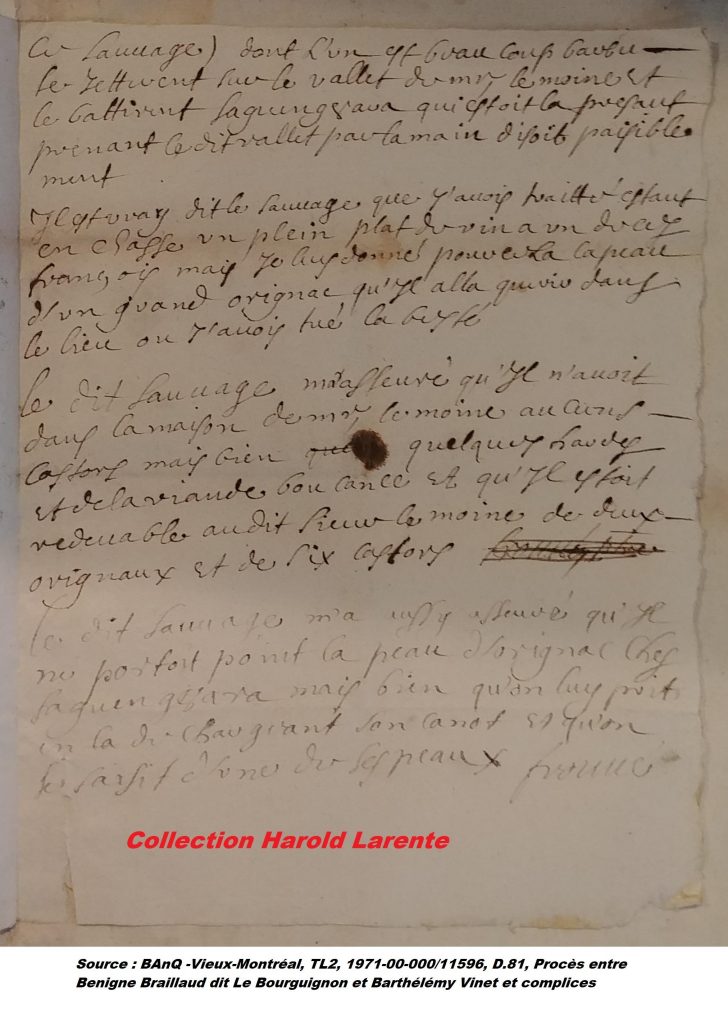 Ce sauuage) dont L'un est beau coup barbu —
se Jetterent sur le vallet de mr le moine Et
le battirent saguengeara qui estoit la presant
prenant le dit vallet par la main disoit paisible
ment
Il est vray dit le sauuage que J'auois traitté estant
en chasse un plein plat de vin a un de ces
francois mais Je luy donné pour cela la peau
d'un grand orignac qu'Il alla querir dans
le lieu ou J'auois tué la beste
le dit sauuage m'a asseuré qu'Il n'auoit
dans la maison de mr le moine aucuns —
castors mais bien quelques hardes
Et de la viande boucanee Et qu'Il estoit
redeuable au dit sieur le moine de deux —
orignaux Et de six castors
le dit sauuage m'a aussy asseuré qu'Il
ne portoit point la peau d'orignac ches
saguengeara mais bien qu'on luy prit
en la de chargeant son canot Et qu'on
le saisit d'une de ses peaux
Collection Harold Larente
Source : BAnQ -Vieux-Montréal, TL2, 1971-00-000/11596, D.81, Procès entre
Benigne Braillaud dit Le Bourguignon et Barthélémy Vinet et complices